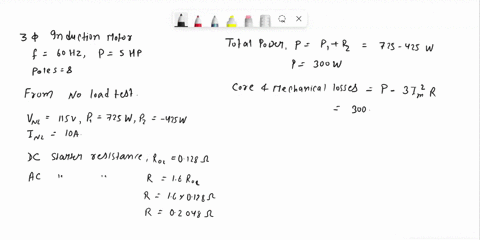 3 Φ Induction Motor
f = 60 Hz, P = 5 HP
Poles = 8
From No load test.
V_NL = 115 V, P₁ = 725 W, P₂ = -425 W
I_NL = 10A.
DC Starter resistance, R_DC = 0.128 Ω
AC " " R = 1.6 R_DC
R = 1.6 × 0.128 Ω
R = 0.2048 Ω
Total Power, P = P₁ + P₂ = 725 - 425 W
P = 300 W
Core & Mechanical losses = P - 3 I_m² R
= 300